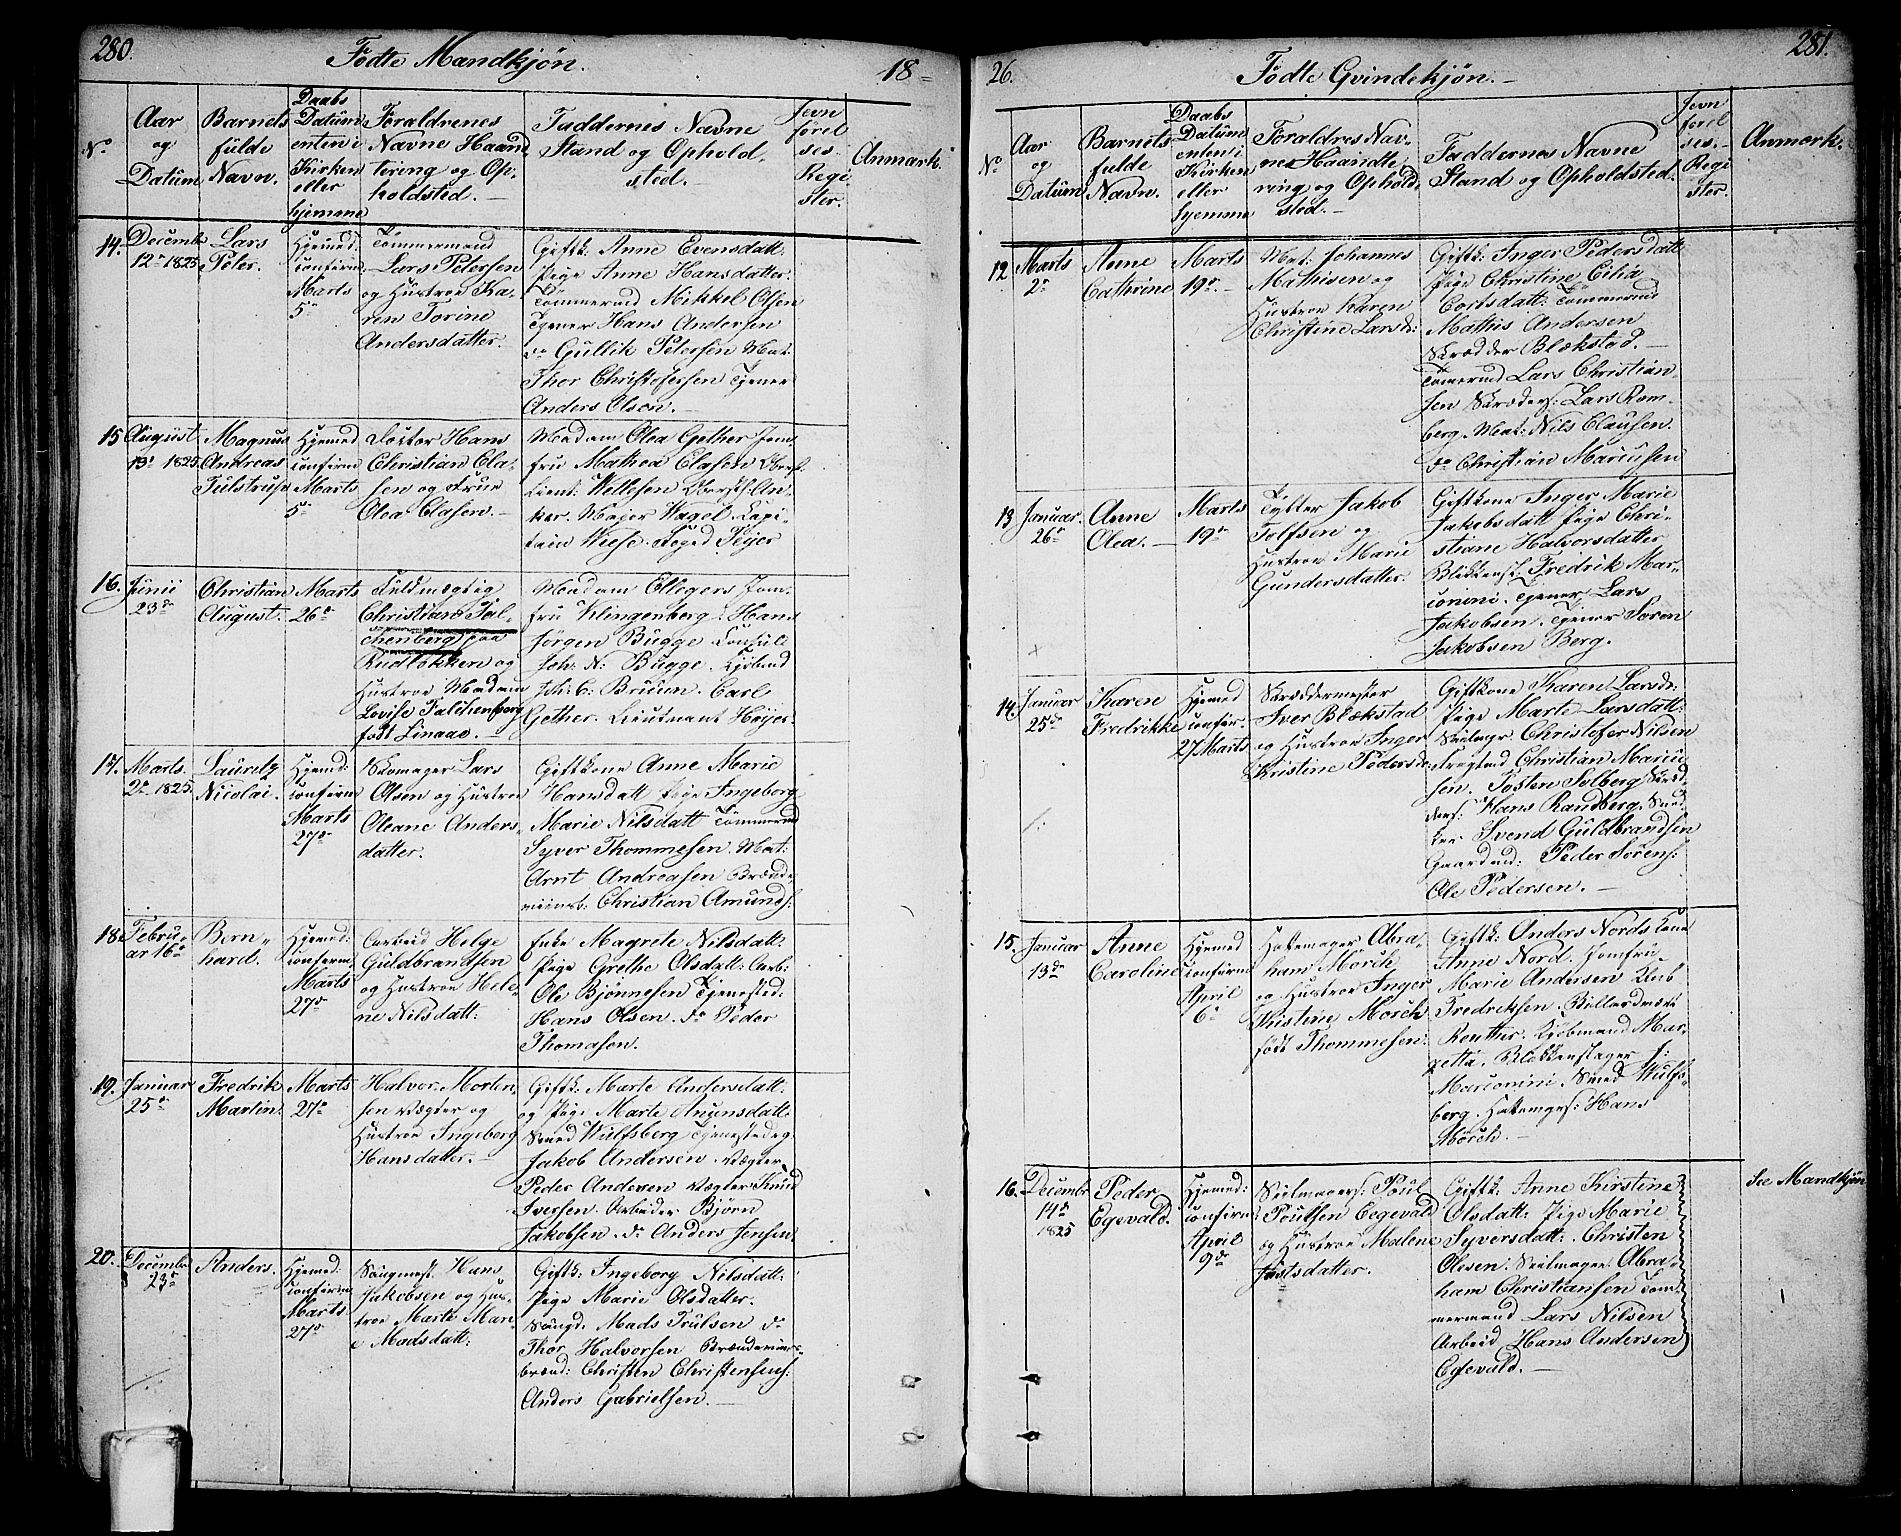 280.
Födte Mandkjön.
18-
No
Aar
og
Datüm
Barnets
fulde
Navn.
Daabs
Datüm
enten i
Kirken
eller
hjemme
Foraldrenes
Navne Haand
tering og Op,
holdsted.
Faddernes Navne
Stand og Ophold,
sted.
Jevn
förel
ses.
Regi
ster.
Anmærk.
14.
Decembr
12te 1825
Lars
Peter.
Hjemmed:
confirm:
Marts
5te
Tömmermand
Lars Petersen
og Hustroe Ka-
ren Torine
Andersdatter.
Giftk: Anne Evensdatt:
Pige Anne Hansdatter.
Tömmermd Mikkel Olsen
Tjener Hans Andersen
do Gullik Petersen Mat:
Thor Christofersen Tjener
Anders Olsen.
15
Augüst
13de 1825.
Magnus
Andreas
Tulstrup
Hjemmed
confirm
Marts
5te
Doctor Hans
Christian Cla-
sen og Frue
Olea Clasen.
Madam Olea Gether Jom-
fru Mathea Clasen Oberst
Lieut: Wetlesen Oberstl: An-
ker. Major Wagel Capi-
tain Wiese. Foged Peyer
16.
Junii
23de
Christian
August.
Marts
26de
Fuldmægtig
Christian Fal-
chenberg paa
Rudlökken og
Hustroe Madam
Lovise Falchenberg
född Linaae.
Madam Ellegers Jom-
fru Klingenberg Hans
Jörgen Bugge Consul
Joh: N: Bugge. Kjöbmd
Joh: C: Bruun. Carl
Gether. Lieutnant Höyer.
17.
Marts.
2de 1825
Lauritz
Nicolai.
Hjemmed:
confirm
Marts
27de
Skomager Lars
Olsen og Hustroe
Oleane Anders
datter.
Giftkone Anne Marie
Hansdatt Pige Ingeborg
Marie Nilsdatt Tömmermd
Syver Thommesen. Mat:
Arnt Andreasen Brænde
viinsb: Christian Amunds:
18.
Febru-
ar 16de
Bern-
hard.
Hjemmed:
confirm.
Marts
27de
Arbeid Helge
Guldbrandsen
og Hustroe Hele-
ne Nilsdatt:
Enke Magrete Nilsdatt:
Pige Grethe Olsdatt: Arb:
Ole Bjönnesen Tjenested:
Hans Olsen. do Peder
Thomasen.
19.
Januar
25de
Fredrik
Martin.
Marts
27de
Halvor Morten-
sen Vægter og
Hustroe Ingeberg
Hansdatter.
Giftk: Marte Andersdatt:
og Pige Marte Anunsdatt:
Smed Wulfsberg Tjenestedrg.
Jakob Andersen. Vægter
Peder Andersen Vægter Knud
Iversen. Arbeider Björn
Jakobsen. do Anders Jensen
20.
Decembr
23de
Anders.
Hjemmed:
confirm
Marts
27de
Saugmest: Hans
Jakobsen og Hus-
troe Marte Mari-
e Madsdatt:
Giftk: Ingeborg Nilsdatt:
Pige Marie Olsdatter.
Saugd: Mads Trulsen do
Thor Halvorsen Brændeviins-
brænd: Christen Christensens:
Anders Gabrielsen.
26.
Födte Qvindekjön.
281.
No
Aar
og
Datüm
Barnets
fulde
Navn.
Daabs
Datüm
enten i
Kirken
eller
hjemme
Foraldres Nav-
ne Haandte
ring og Ophold
sted.
Faddernes Navne
Stand og Opholdsted.
Jevn
forel
ses.
Regi
ster.
Anmærk.
12
Marts
2de
Anne
Cathrine
Marts
19de
Mat: Johannes
Mathisen og
Hustroe Karen
Christine Larsd:
Giftk: Inger Pedersdatt
Pige Christine Cilia
Corlsdatt: Tömmermd
Mathis Andersen
Skrædder Blækstad.
Tömermd Lars Christian-
sen Skræders: Lars Rom-
berg. Mat: Nils Clausen.
do Christian Marcusen
13
Januar.
26de
Anne
Olea.
Marts
19de
Tylter Jakob
Tolfsen og
Hustroe Marie
Gundersdatter.
Giftkone Inger Marie
Jakobsdatt Pige Chri-
stiane Halvorsdatter
Blikkensl. Fredrik Mar-
conini. Tjener Lars
Jakobsen. Tjener Soren
Jakobsen Berg.
14.
Januar
25de
Karen
Fredrikke
Hjemmed
confir.
27 Marts
Skræddermester
Iver Blækstad
og Hustroe Inger
Kristine Pedersd:
Giftkone Karen Larsd:
Pige Marte Larsdatt:
Christofer Nilsen
Christian Mariu
sen. Tosten Solberg Skræd
ders: Hans Randberg. Sned-
ker Svend Guldbrandsen
Gaardmd: Peder Sörens:
Ole Pedersen.
15.
Januar
13de
Anne
Caroline
Hjemmed
confirm
April
6te
Hattemager Abra-
ham Mörch
og Hustroe Inger
Kristine Mörch
född Thommesen.
Giftk: Anders Nords Kone
Anne Nord. Jomfru
Marie Andersen
Fredriksen.
Reuthir. Kjöbmand Mar-
zetta. Blekkenslager J:
Marconini. Smed Wulfs-
berg. Hattemgs: Hans
Mörch.
16.
Decembr
14de
1825
Peder
Egevald.
Hjemmed:
confirm
April
9de
Seilmagers: Poul
Poulsen Eegevald
og Hustroe Malene
Jostsdatter.
Giftk: Anne Kirstine
Olsdatt: Pige Marie
Syversdatt: Christen
Olesen. Seilmager. Abra-
ham Christiansen Töm-
mermand Lars Nilsen
Arbeid Hans Andersen
Egevald.
See Mandkjön